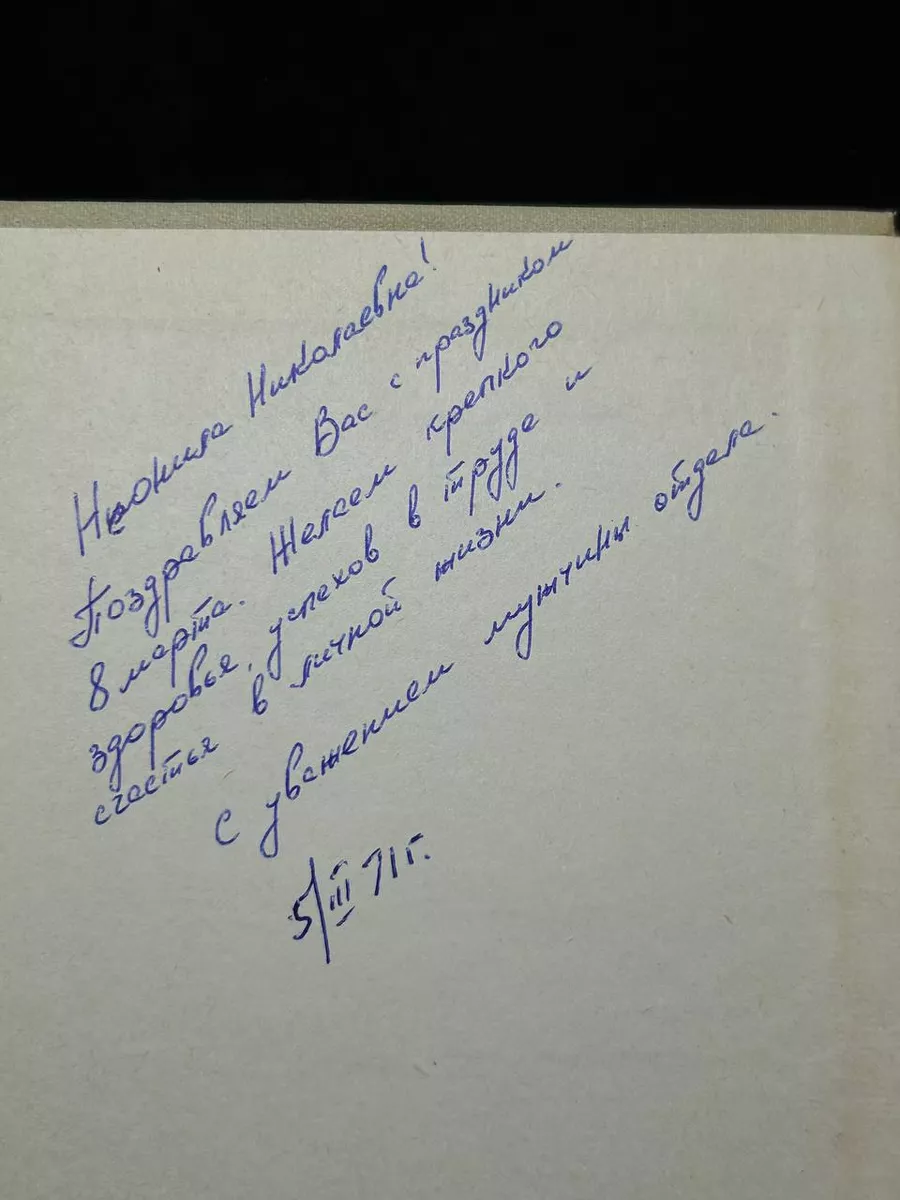 Неонила Николаевна!
Поздравляем Вас с праздником
8 марта. Желаем крепкого
здоровья, успехов в труде и
счастья в личной жизни.
С уважением мужчины отдела.
5/III 71г.